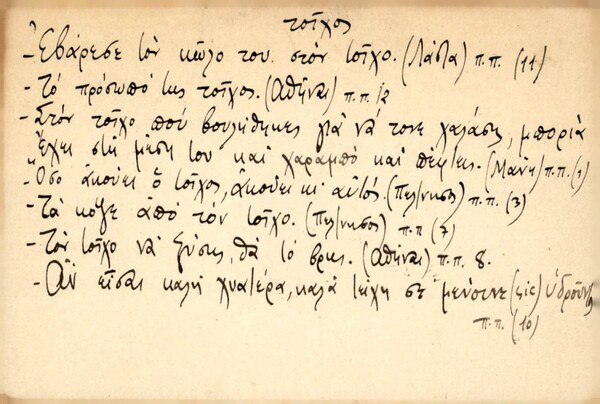 τοῖχος
- Ἐβάρεσε τὸν κῶλο του στὸν τοῖχο. (Λάστα) π.π. (11)
- Τὸ πρόσωπό της τοῖχος. (Ἀθῆναι) π.π. 12
- Στὸν τοῖχο ποὺ βουλήθηκες γιὰ νὰ τονε χαλάσῃ, μποριὰ
ἔχει στὴ μέση του καὶ χαραμπὸ καὶ πέφτεις. (Μάνη) π.π. (1)
- Ὅσο ἀκούει ὁ τοῖχος, ἀκούει κι' αὐτός. (Πελ/νησος) π.π. (3)
- Τὰ κοψε ἀπὸ τὸν τοῖχο. (Πελ/νησος) π.π (7)
- Τὸν τοῖχο νὰ ξύσῃς, θὰ τὸ βρῇς. (Ἀθῆναι) π.π. 8.
- Ἂν εἶσαι καλὴ χυατέρα, καλὰ τείχη σὲ μένουνε (sic)
π.π. (10)